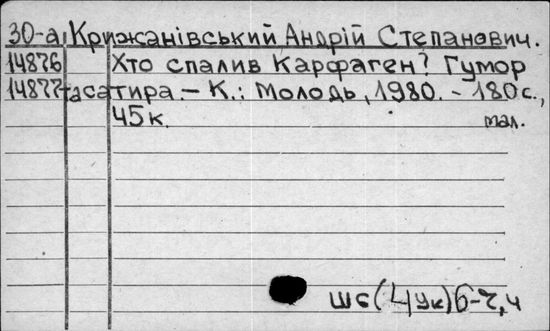 30-а Крижанівський Андрій Степанович.
14876 Хто спалив Карфаген? Гумор
14877 та сатира. – К.: Молодь, 1980. – 180 с.,
45 к. мал.
Ш6(4Ук)6-7,4